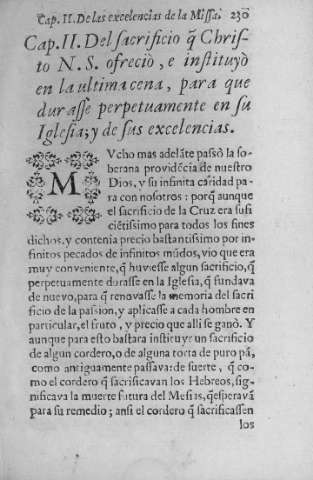 Cap. II. De las excelencias de la Missa. 230
Cap. II. Del sacrificio q̃ Chris-
to N. S. ofreciò, e instituyò
en la ultima cena, para que
durasse perpetuamente en su
Iglesia; y de sus excelencias.
MVcho mas adelãte passò la so-
berana providẽcia de nuestro
Dios, y su infinita caridad pa-
ra con nosotros : porq̃ aunque
el sacrificio de la Cruz era sufi
ciẽtissimo para todos los fines
dichos, y contenia precio bastantissimo por in-
finitos pecados de infinitos mũdos, vio que era
muy conveniente, q̃ huviesse algun sacrificio, q̃
perpetuamente durasse en la Iglesia, q̃ fundava
de nuevo, para q̃ renovasse la memoria del sacri
ficio de la passion, y aplicasse a cada hombre en
particular, el fruto, y precio que alli se ganò. Y
aunque para esto bastara instituyr un sacrificio
de algun cordero, o de alguna torta de puro pã,
como antiguamente passava: de suerte, q̃ co-
mo el cordero q̃ sacrificavan los Hebreos, sig-
nificava la muerte futura del Mesias, q̃ esperavã
para su remedio; ansi el cordero q̃ sacrificassen
los